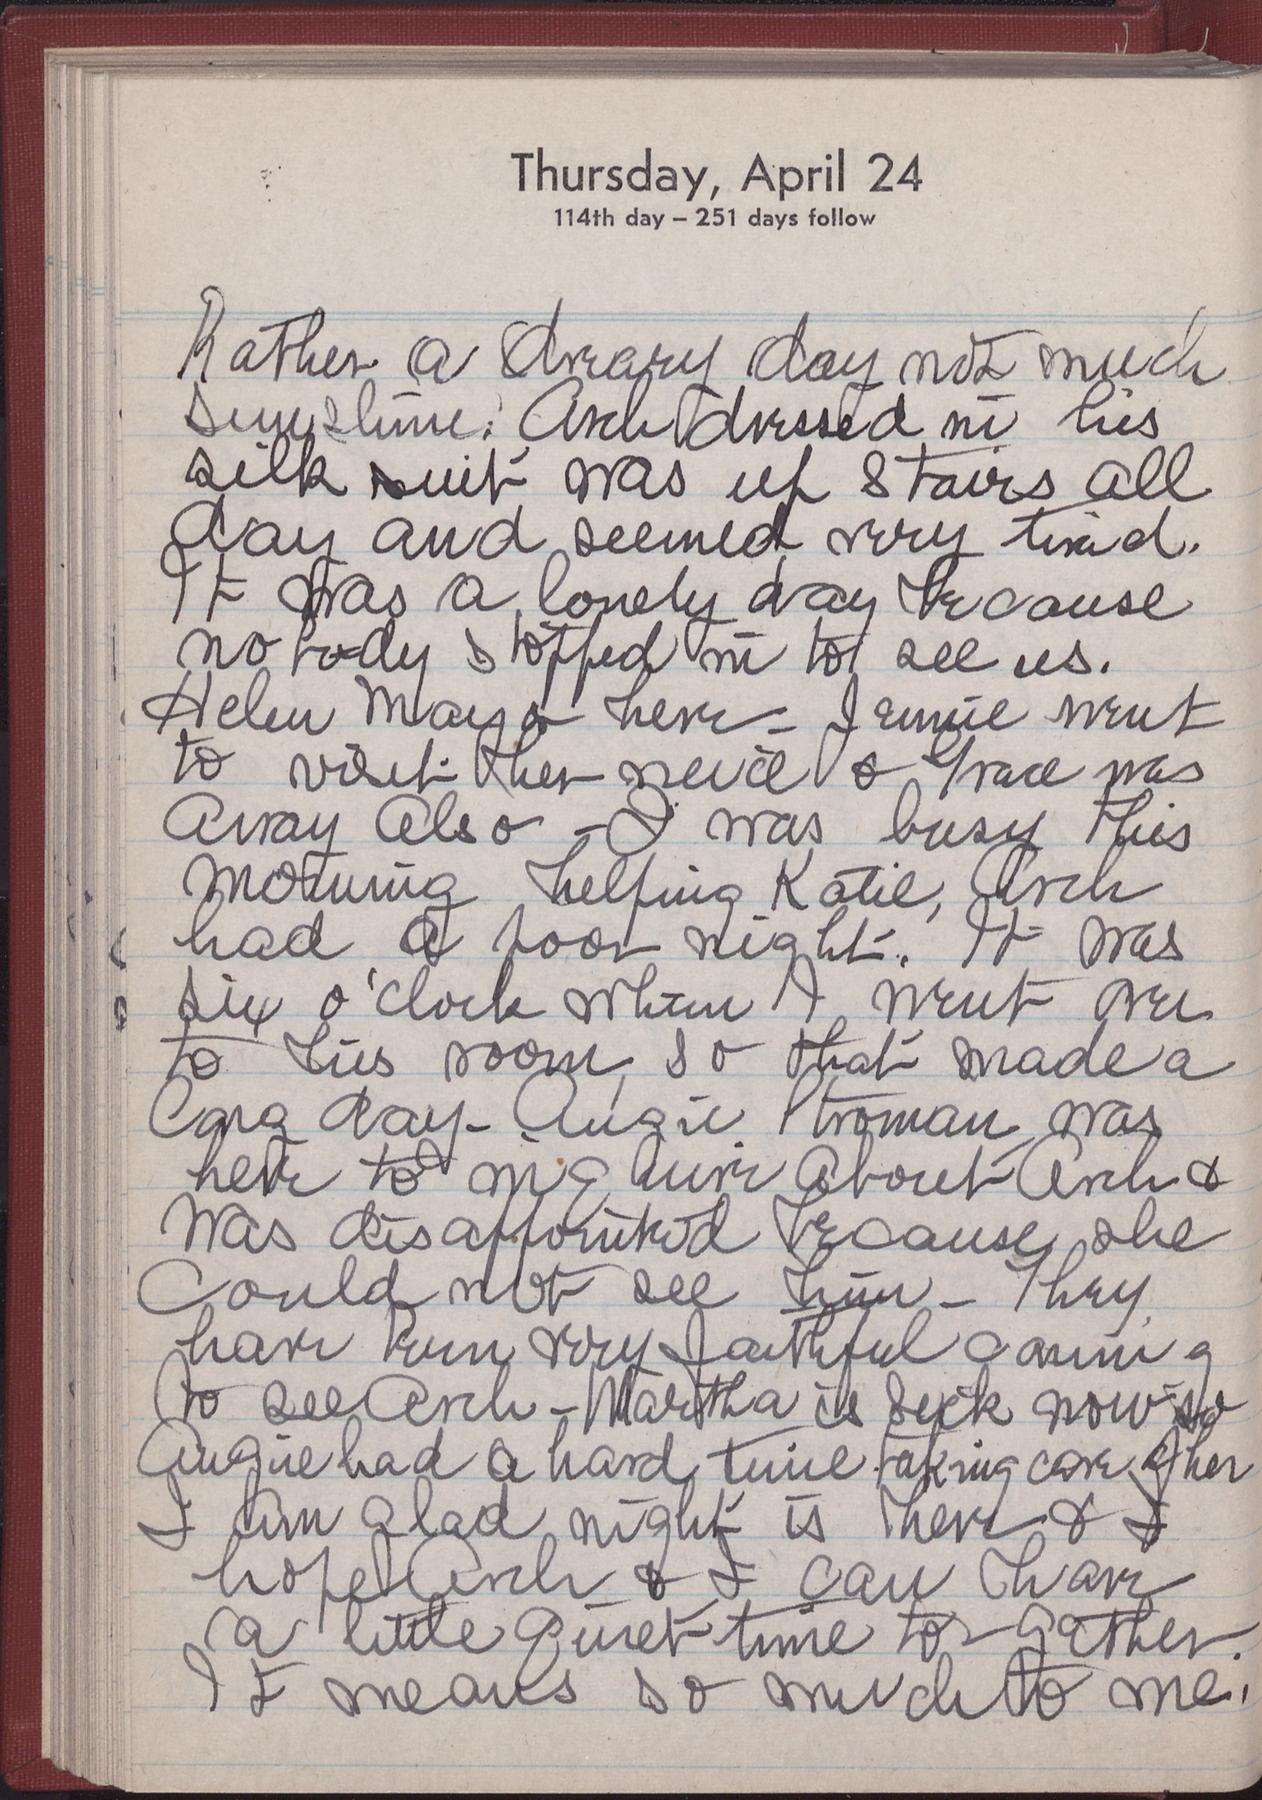 Thursday, April 24
114th day – 251 days follow
Rather a dreary day not much
sunshine. Arch dressed in his
silk suit was up stairs all
day and seemed very tired.
It was a lonely day because
no body stopped in to see us.
Helen Mayo here – Jennie went
to visit her neice & Grace was
away also – I was busy this
morning helping Katie, Arch
had a poor night. It was
six o'clock when I went over
to his room, so that made a
long day – Augie Stroman was
here to inquire about Arch &
was disappointed because she
could not see him – They
have been very faithful coming
to see Arch – Martha is sick now so
Augie had a hard time taking care of her
I am glad night is here & I
hope Arch & I can have
a little quiet time to-gether.
It means so much to me.